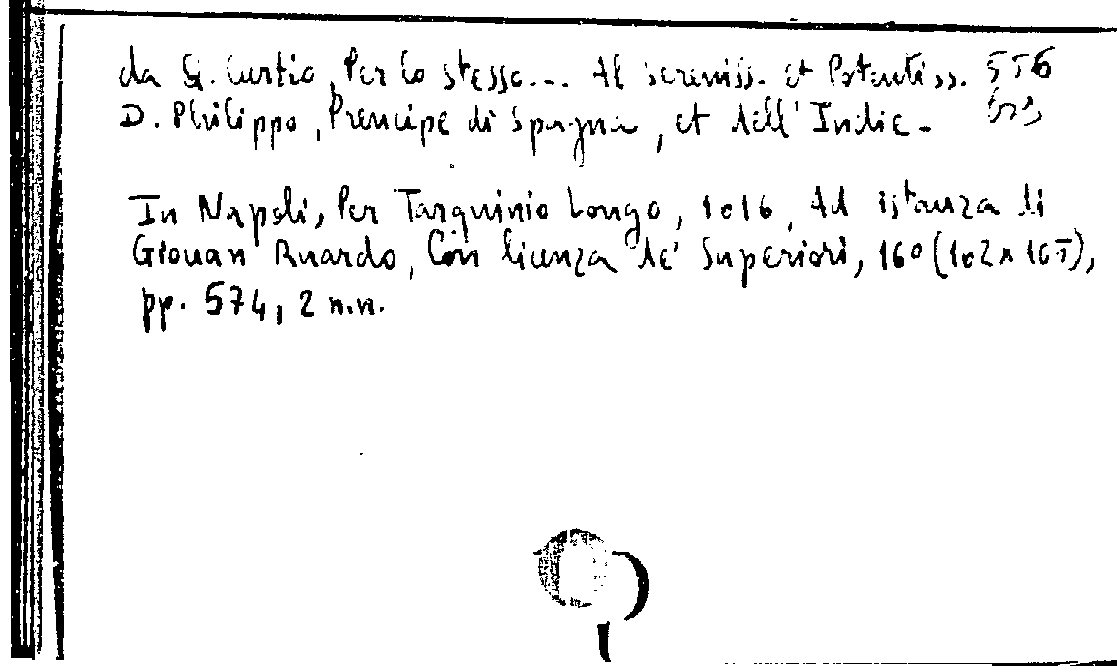 da Q. Curtio, Per lo stesso... Al sereniss. et Potentiss. 556
D. Philippo, Prencipe di Spagna, et dell'Indie. bis
In Napoli, Per Tarquinio Longo, 1616, Ad istanza di
Giouan Ruardo, Con licenza de' Superiori, 16o (102 x 165),
pp. 574, 2 n.n.